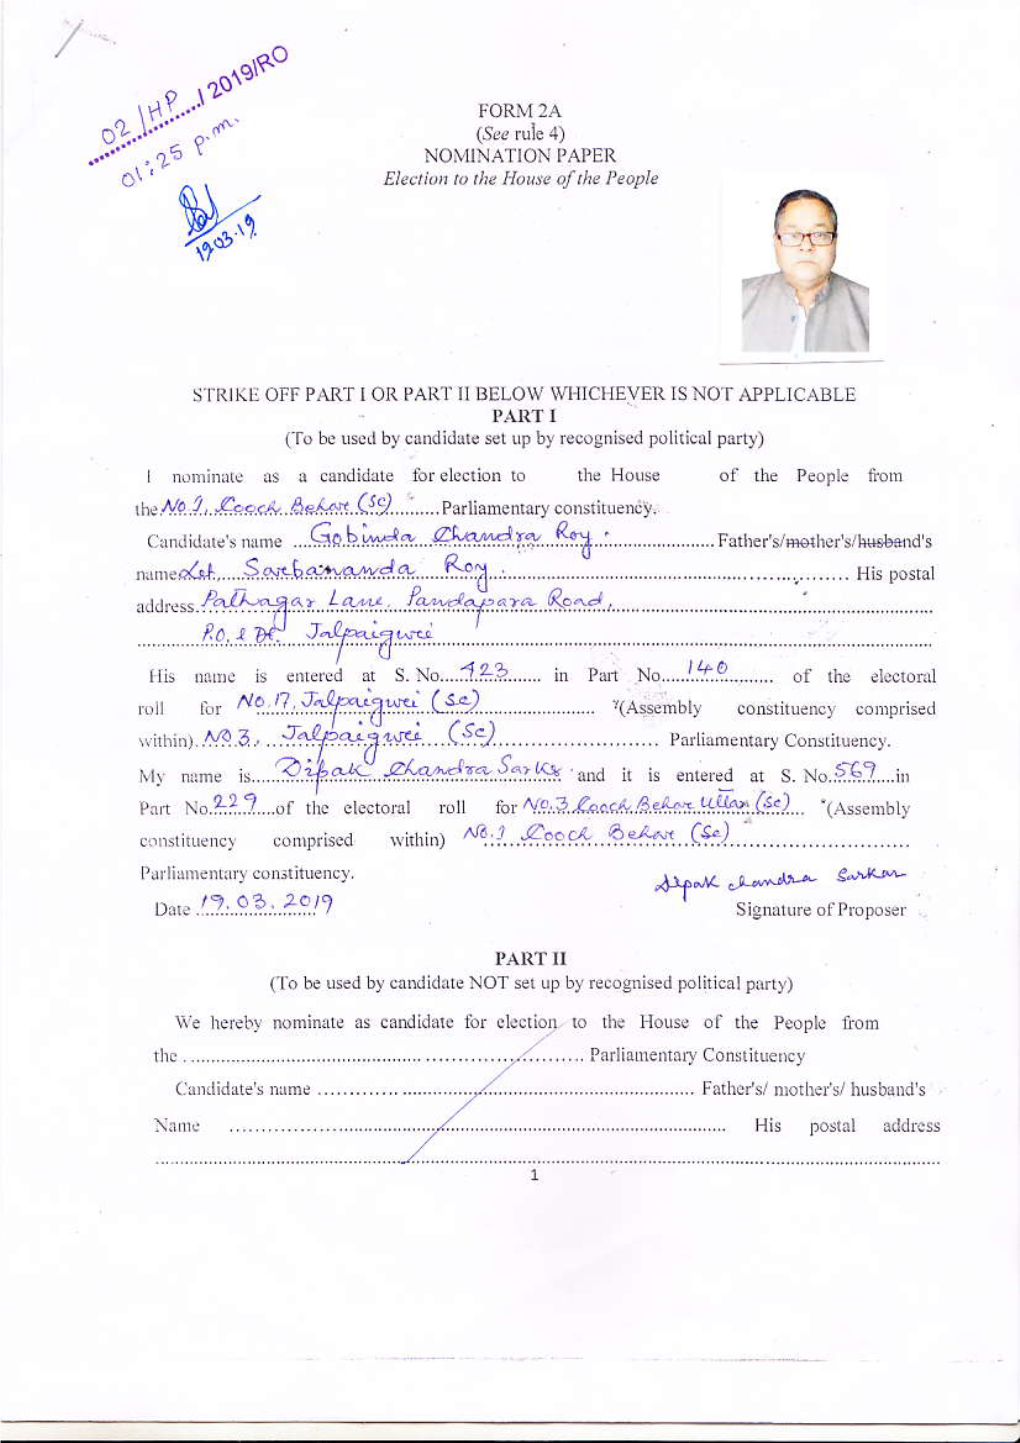 02/HP...../2019/RO
01:25 p.m.
19.03.19
FORM 2A
(See rule 4)
NOMINATION PAPER
Election to the House of the People
STRIKE OFF PART I OR PART II BELOW WHICHEVER IS NOT APPLICABLE
PART I
(To be used by candidate set up by recognised political party)
I nominate as a candidate for election to the House of the People from
the No 1, Cooch Behar (SC) Parliamentary constituency.
Candidate's name Gobinda Chandra Roy. Father's/mother's/husband's
name Lat, Sarbananda Roy. His postal
address Pathagar Lane, Pandapara Road,
P.O. & Dt. Jalpaiguri
His name is entered at S. No. 423 in Part No. 140 of the electoral
roll for No. 17, Jalpaiguri (Sc) *(Assembly constituency comprised
within) No 3, Jalpaiguri (Sc) Parliamentary Constituency.
My name is Dipak Chandra Sarkar and it is entered at S. No. 569 in
Part No. 229 of the electoral roll for No. 3 Cooch Behar Uttar (Sc) *(Assembly
constituency comprised within) No. 1 Cooch Behar (Sc)
Parliamentary constituency.
Dipak chandra Sarkar
Date 19.03.2019 Signature of Proposer
PART II
(To be used by candidate NOT set up by recognised political party)
We hereby nominate as candidate for election to the House of the People from
the .......... Parliamentary Constituency
Candidate's name .......... Father's/ mother's/ husband's
Name .......... His postal address
1